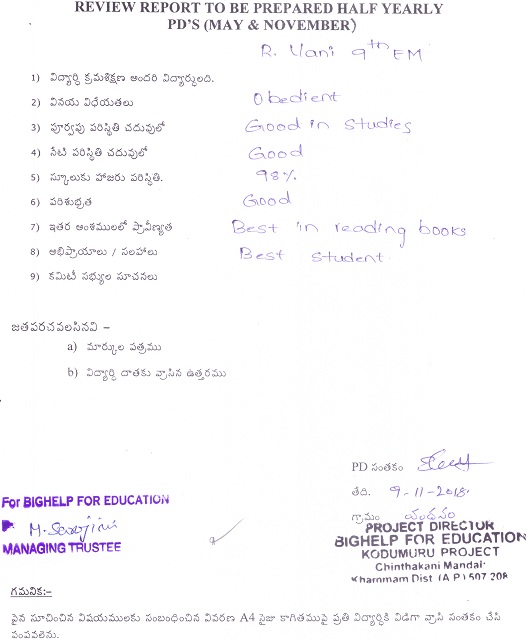 REVIEW REPORT TO BE PREPARED HALF YEARLY
PD'S (MAY & NOVEMBER)
R. Vani 9th EM
1) విద్యార్థి క్రమశిక్షణ ఆందరి విద్యార్థులది.
2) వినయ విధేయతలు Obedient
3) పూర్వపు పరిస్థితి చదువులో Good in Studies
4) నేటి పరిస్థితి చదువులో Good
5) స్కూలుకు హాజరు పరిస్థితి. 98%
6) పరిశుభ్రత Good
7) ఇతర అంశములలో ప్రావీణ్యత Best in reading books
8) అభిప్రాయాలు / సలహాలు Best student
9) కమిటీ సభ్యుల సూచనలు
జతపరచవలసినవి –
a) మార్కుల పత్రము
b) విద్యార్థి దాతకు వ్రాసిన ఉత్తరము
PD సంతకం
తేది. 9-11-2018
గ్రామం
For BIGHELP FOR EDUCATION
M. Sarojini
MANAGING TRUSTEE
PROJECT DIRECTOR
BIGHELP FOR EDUCATION
KODUMURU PROJECT
Chinthakani Mandal
Khammam Dist (A P) 507 208
గమనిక:–
పైన సూచించిన విషయములకు సంబంధించిన వివరణ A4 సైజు కాగితముపై ప్రతి విద్యార్థికి విడిగా వ్రాసి సంతకం చేసి
పంపవలెను.